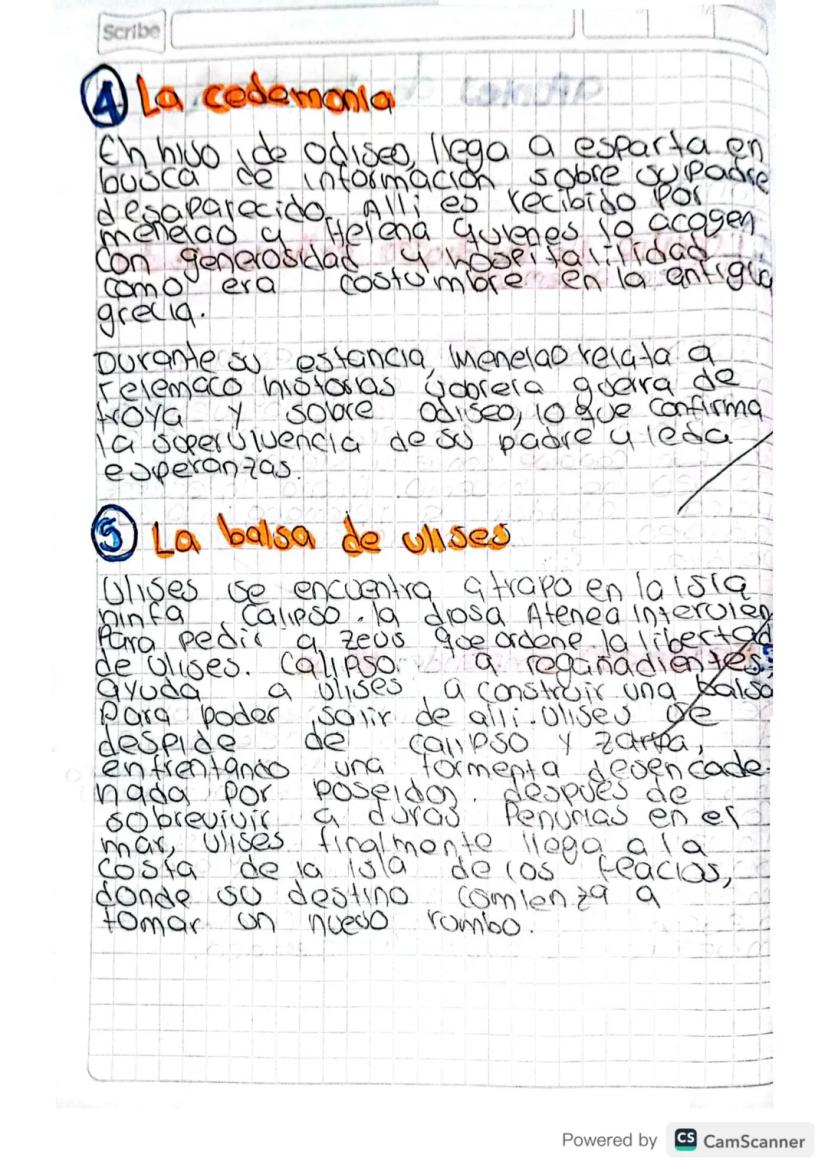 Scribe
4 La cedemonia
Eh hiso, de odiseo, llega a esparta en
busca de información sobre su padre
desaparecido. Alli es recibido por
menelao y Helena quienes lo acogen
con generosidad y hospitalilidad
como era costumbre en la antigua
grecia.
Durante su estancia, menelao relata a
Telemaco historias sobrela guerra de
troya y sobre odiseo, lo que confirma
la superviuencia de su padre y leda
esperanzas.
5 La balsa de ulises
Ulises se encuentra atrapo en la isla
ninfa calipso. la diosa Atenea intervien
Para pedir a zeus que ordene la libertad
de ulises. Calipso a regañadientes,
ayuda a ulises a construir una balsa
Para poder salir de alli. Ulises se
despide de calipso y zarpa,
enfrentando una tormenta desencade
nada por poseidon. después de
sobrevivir a duras Penurias en el
mar, ulises finalmente llega a la
costa de la isla de los feacios,
donde su destino comienza a
tomar un nuevo rumbo.
Powered by CS CamScanner